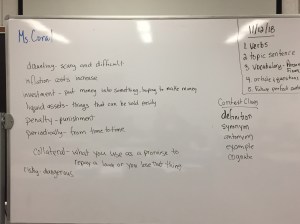 Ms Coral
daunting - scary and difficult
inflation - costs increase
investment - put money into something, hoping to make money
liquid assets - things that can be sold easily
penalty - punishment
periodically - from time to time
collateral - what you use as a promise to
repay a loan or you lose that thing
risky - dangerous
11/12/18
1. verbs
2. topic sentence
3. vocabulary -
4. article + questions
5. future perfect
Context Clues
definition
synonym
antonym
example
cognate